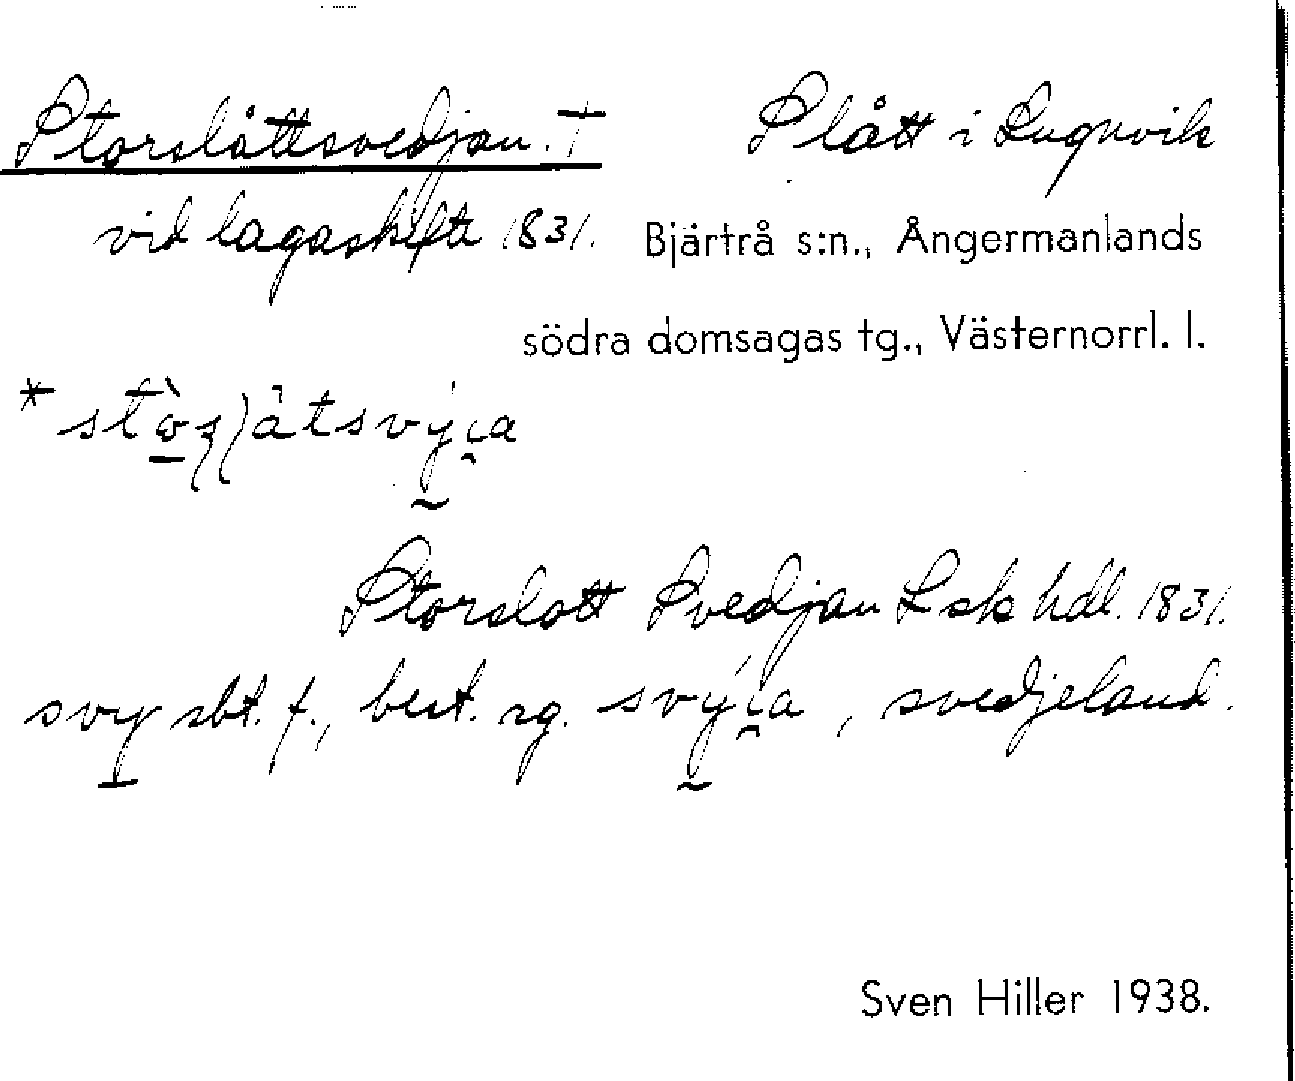 Storslåttsvedjan. † Slått i Lugnvik
vid lagaskifte 1831. Bjärtrå s:n., Ångermanlands
södra domsagas tg., Västernorrl. l.
Storslott Svedjan Lsk hdl. 1831.
svy sbt. f., best. sg. , svedjeland.
Sven Hiller 1938.